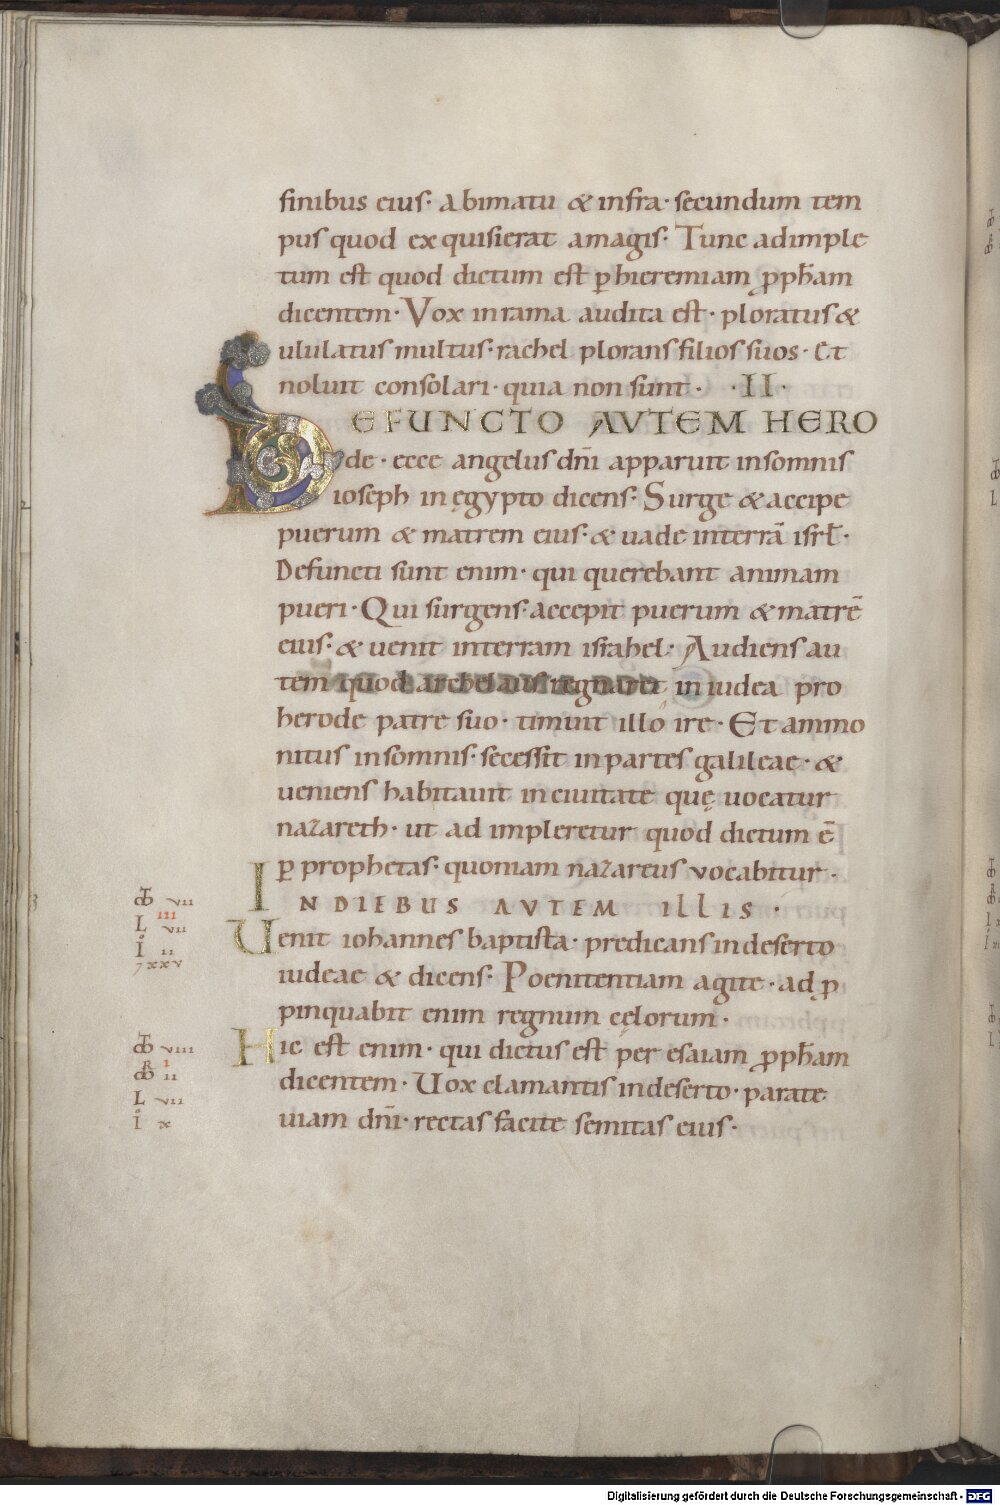 finibus eius· a bimatu & infra· secundum tem
pus quod exquisierat amagis· Tunc adimple
tum est quod dictum est ꝑ hieremiam ꝓph̄am
dicentem· Vox inrama audita est· ploratus &
ululatus multus· rachel plorans filios suos· Et
noluit consolari· quia non sunt· ·II·
DEFUNCTO AVTEM HERO
de· ecce angelus dn̄i apparuit insomnis
ioseph in ęgypto dicens· Surge & accipe
puerum & matrem eius· & uade interrā isrl̄·
Defuncti sunt enim· qui querebant animam
pueri· Qui surgens· accepit puerum & matrē
eius· & uenit interram israhel· Audiens au
tem quod archelaus regnaret in iudea pro
herode patre suo· timuit illo ire· Et ammo
nitus insomnis· secessit inpartes galileae· &
ueniens habitauit inciuitate quę uocatur
nazareth· ut adimpleretur quod dictum ē
ꝑ prophetas· quoniam nazareus vocabitur·
IN DIEBUS AVTEM ILLIS·
Uenit iohannes baptista· predicans indeserto
iudeae & dicens· Poenitentiam agite· adꝓ
pinquabit enim regnum cęlorum·
Hic est enim· qui dictus est per esaiam ꝓph̄am
dicentem· Uox clamantis indeserto· parate
uiam dn̄i· rectas facite semitas eius·
VII
III
L VII
I II
XXV
VIII
I
II
L VII
I X
Digitalisierung gefördert durch die Deutsche Forschungsgemeinschaft - DFG